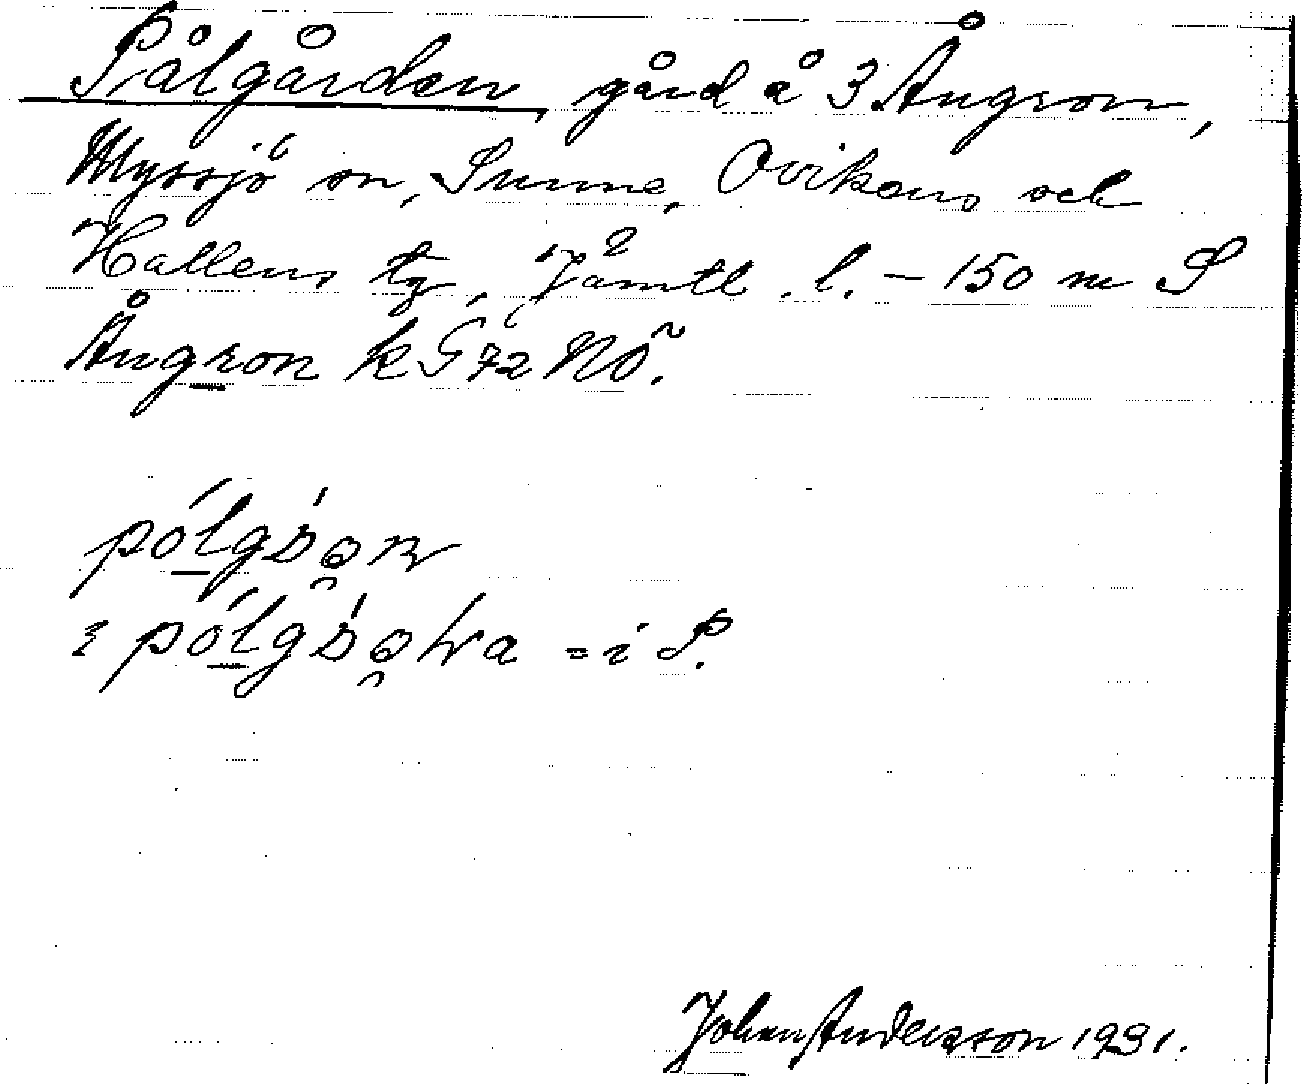 Pålgården, gård å 3 Ångron,
Myssjö sn, Sunne, Ovikens och
Hallens tg, Jämtl. l. – 150 m S
Ångron k G 72 NÖ.
= i P.
Johan Andersson 1931.